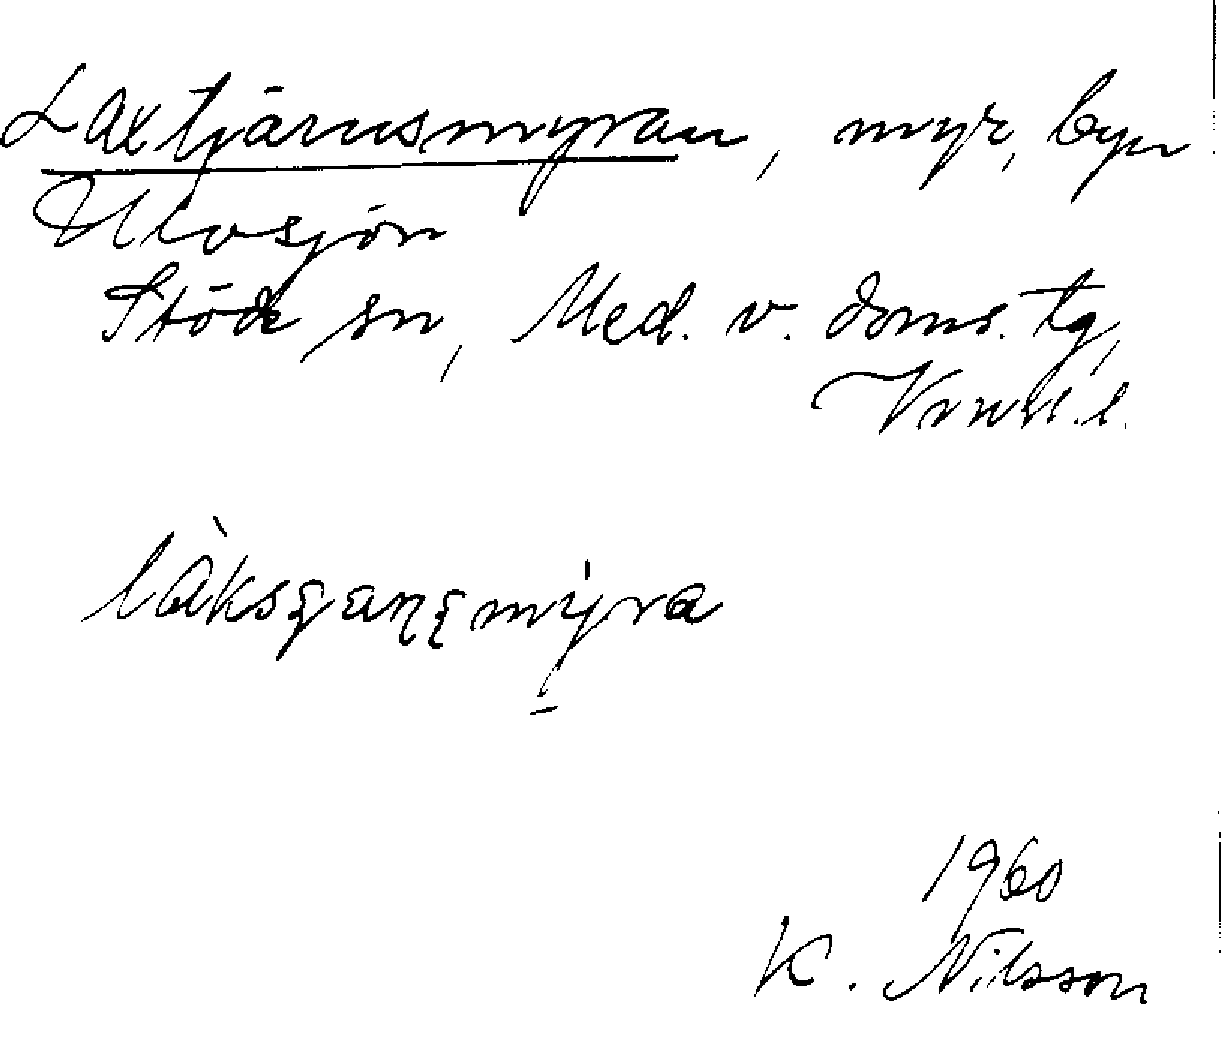 Laxtjärnsmyran, myr, byn
Ulvsjön
Stöde sn, Med. v. doms. tg,
Vrnrl. l.
1960
K. Nilsson